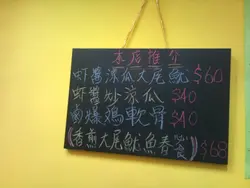 本店推介
虾醬涼瓜大尾魷 $60
虾醬炒涼瓜 $40
爆鷄軟骨 $40
(香煎大尾魷魚春 食) $68